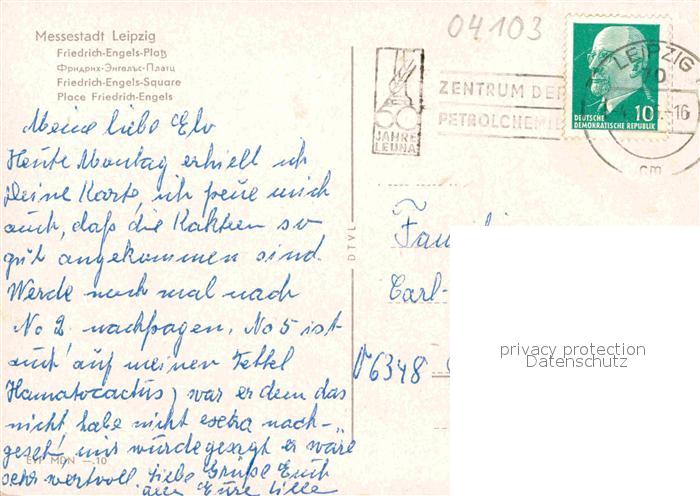 04103
Messestadt Leipzig
Friedrich-Engels-Platz
Фридрих-Энгельс-Платц
Friedrich-Engels-Square
Place Friedrich-Engels
Meine liebe
Heute Montag erhielt ich
Deine Karte, ich freue mich
auch, daß die Kakteen so
gut angekommen sind.
Werde noch mal nach
No 2 nachfragen, No 5 ist
auf meinen Zettel
Hamatocactus, war er dem das
nicht habe nicht extra nach-
geseh' mir wurde gesagt er wäre
sehr wertvoll. Liebe Grüße Euch
allen Eure
EVP MDN -.10
DTVL
JAHRE
LEUNA
ZENTRUM DER
PETROLCHEMIE
LEIPZIG
70
16
cm
10
DEUTSCHE
DEMOKRATISCHE REPUBLIK
Fam
Carl-
6348
privacy protection
Datenschutz